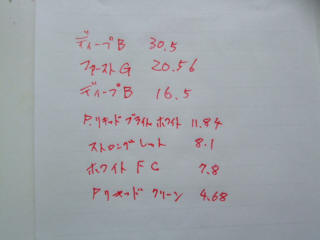 ディープB 30.5
ファーストG 20.56
ディープB 16.5
P.リキッド ブライトホワイト 11.84
ストロングレット 8.1
ホワイト F G 7.8
Pリキッド グリーン 4.68